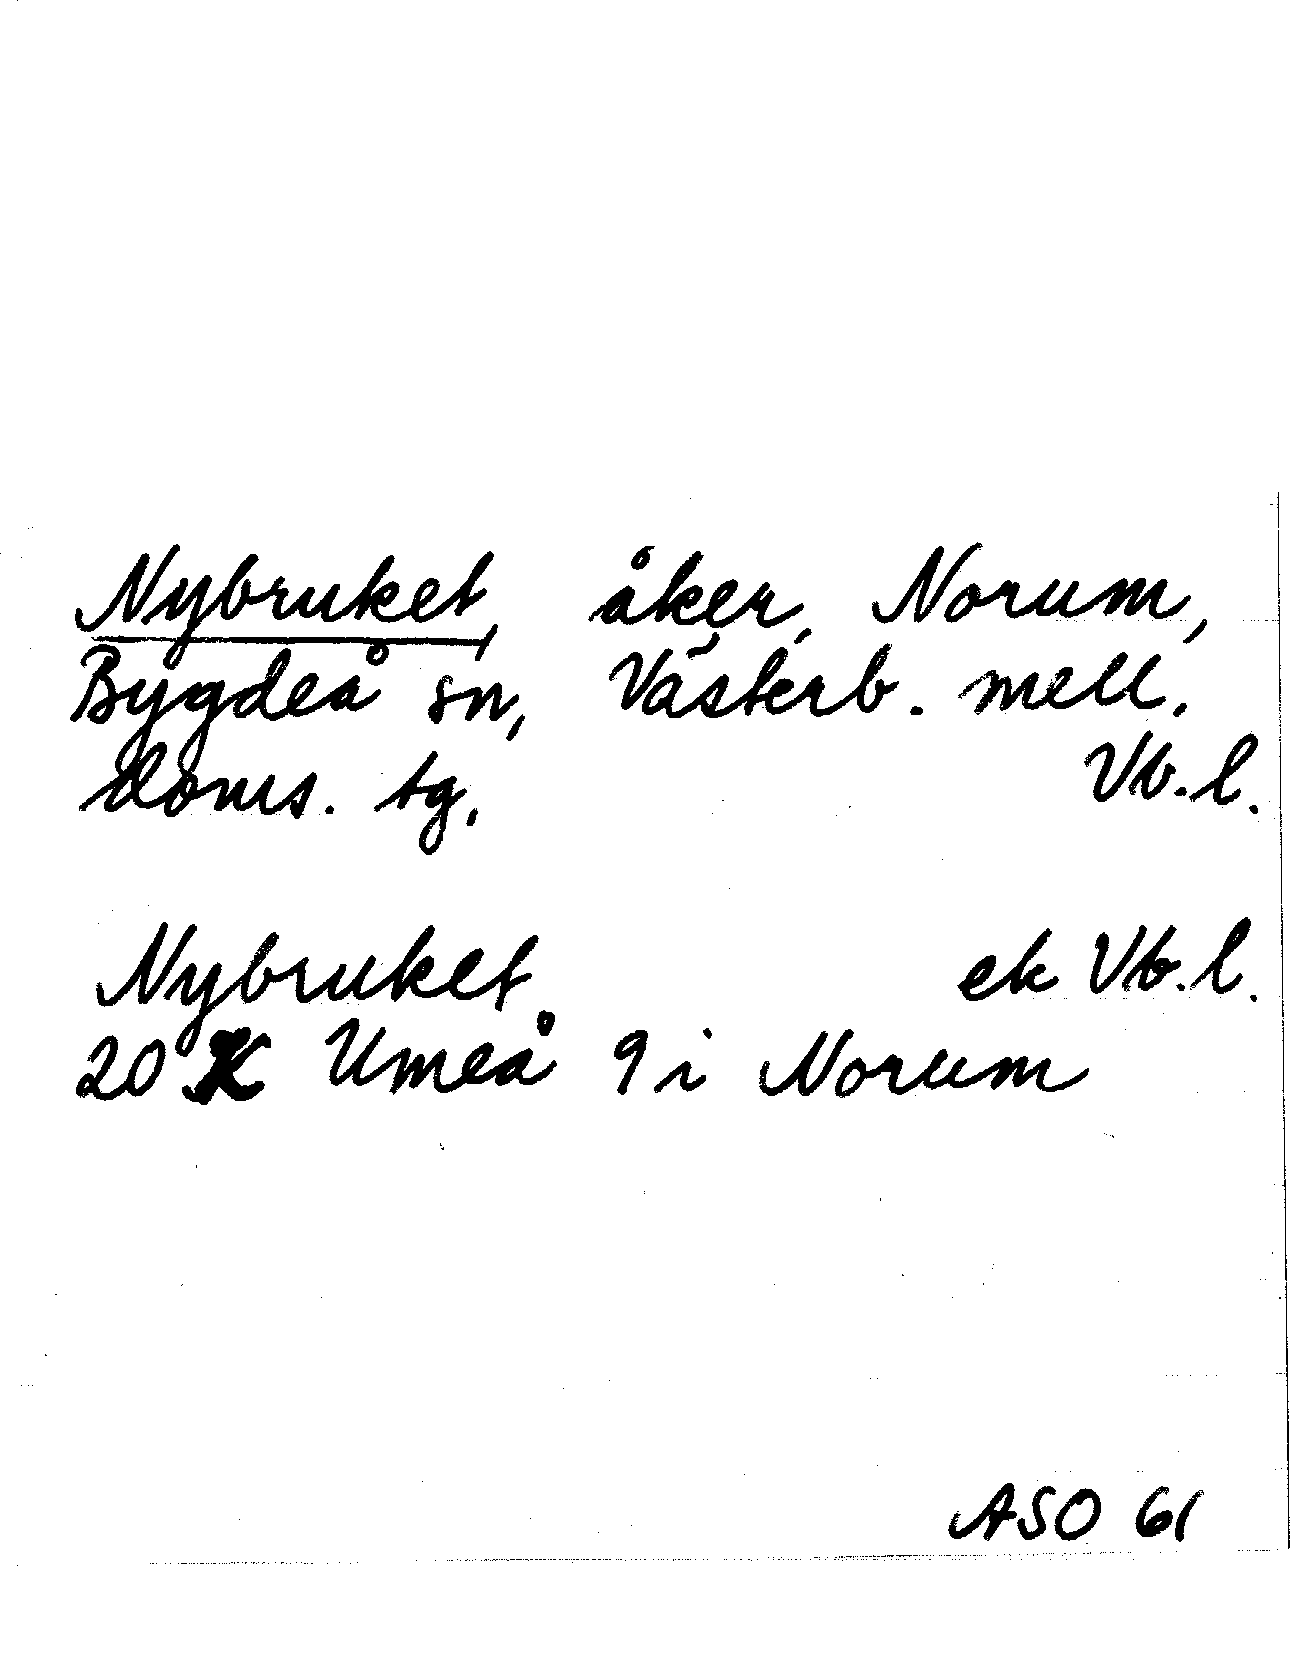 Nybruket, åker, Norum,
Bygdeå sn, Västerb. mell.
doms. tg, Vb. l.
Nybruket. ek Vb. l.
20 K Umeå 9 i Norum
ASO 61